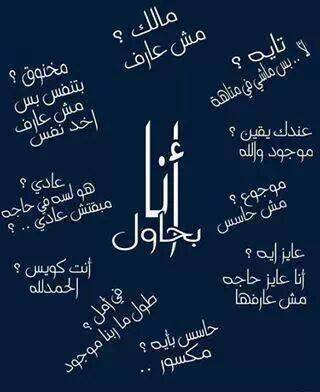 مالك ؟
مش عارف
تايه ؟
لأ .. بس ماشي في متاهة
مخنوق ؟
بتنفس بس
مش عارف
اخد نفس
عندك يقين ؟
موجود والله
أنا
بحاول
موجوع ؟
مش حاسس
عادي ؟
هو لسه في حاجه
مبقتش عادي .. ؟
عايز إيه ؟
أنا عايز حاجه
مش عارفها
أنت كويس ؟
الحمدلله
في أمل ؟
طول ما ربنا موجود
حاسس بأيه ؟
مكسور ..